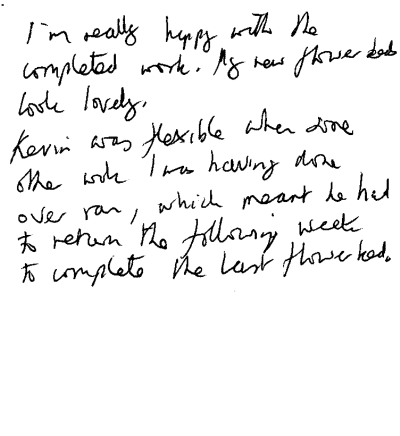 I'm really happy with the
completed work. My new flower beds
look lovely.
Kevin was flexible when some
other work I was having done
over ran, which meant he had
to return the following week
to complete the last flower bed.